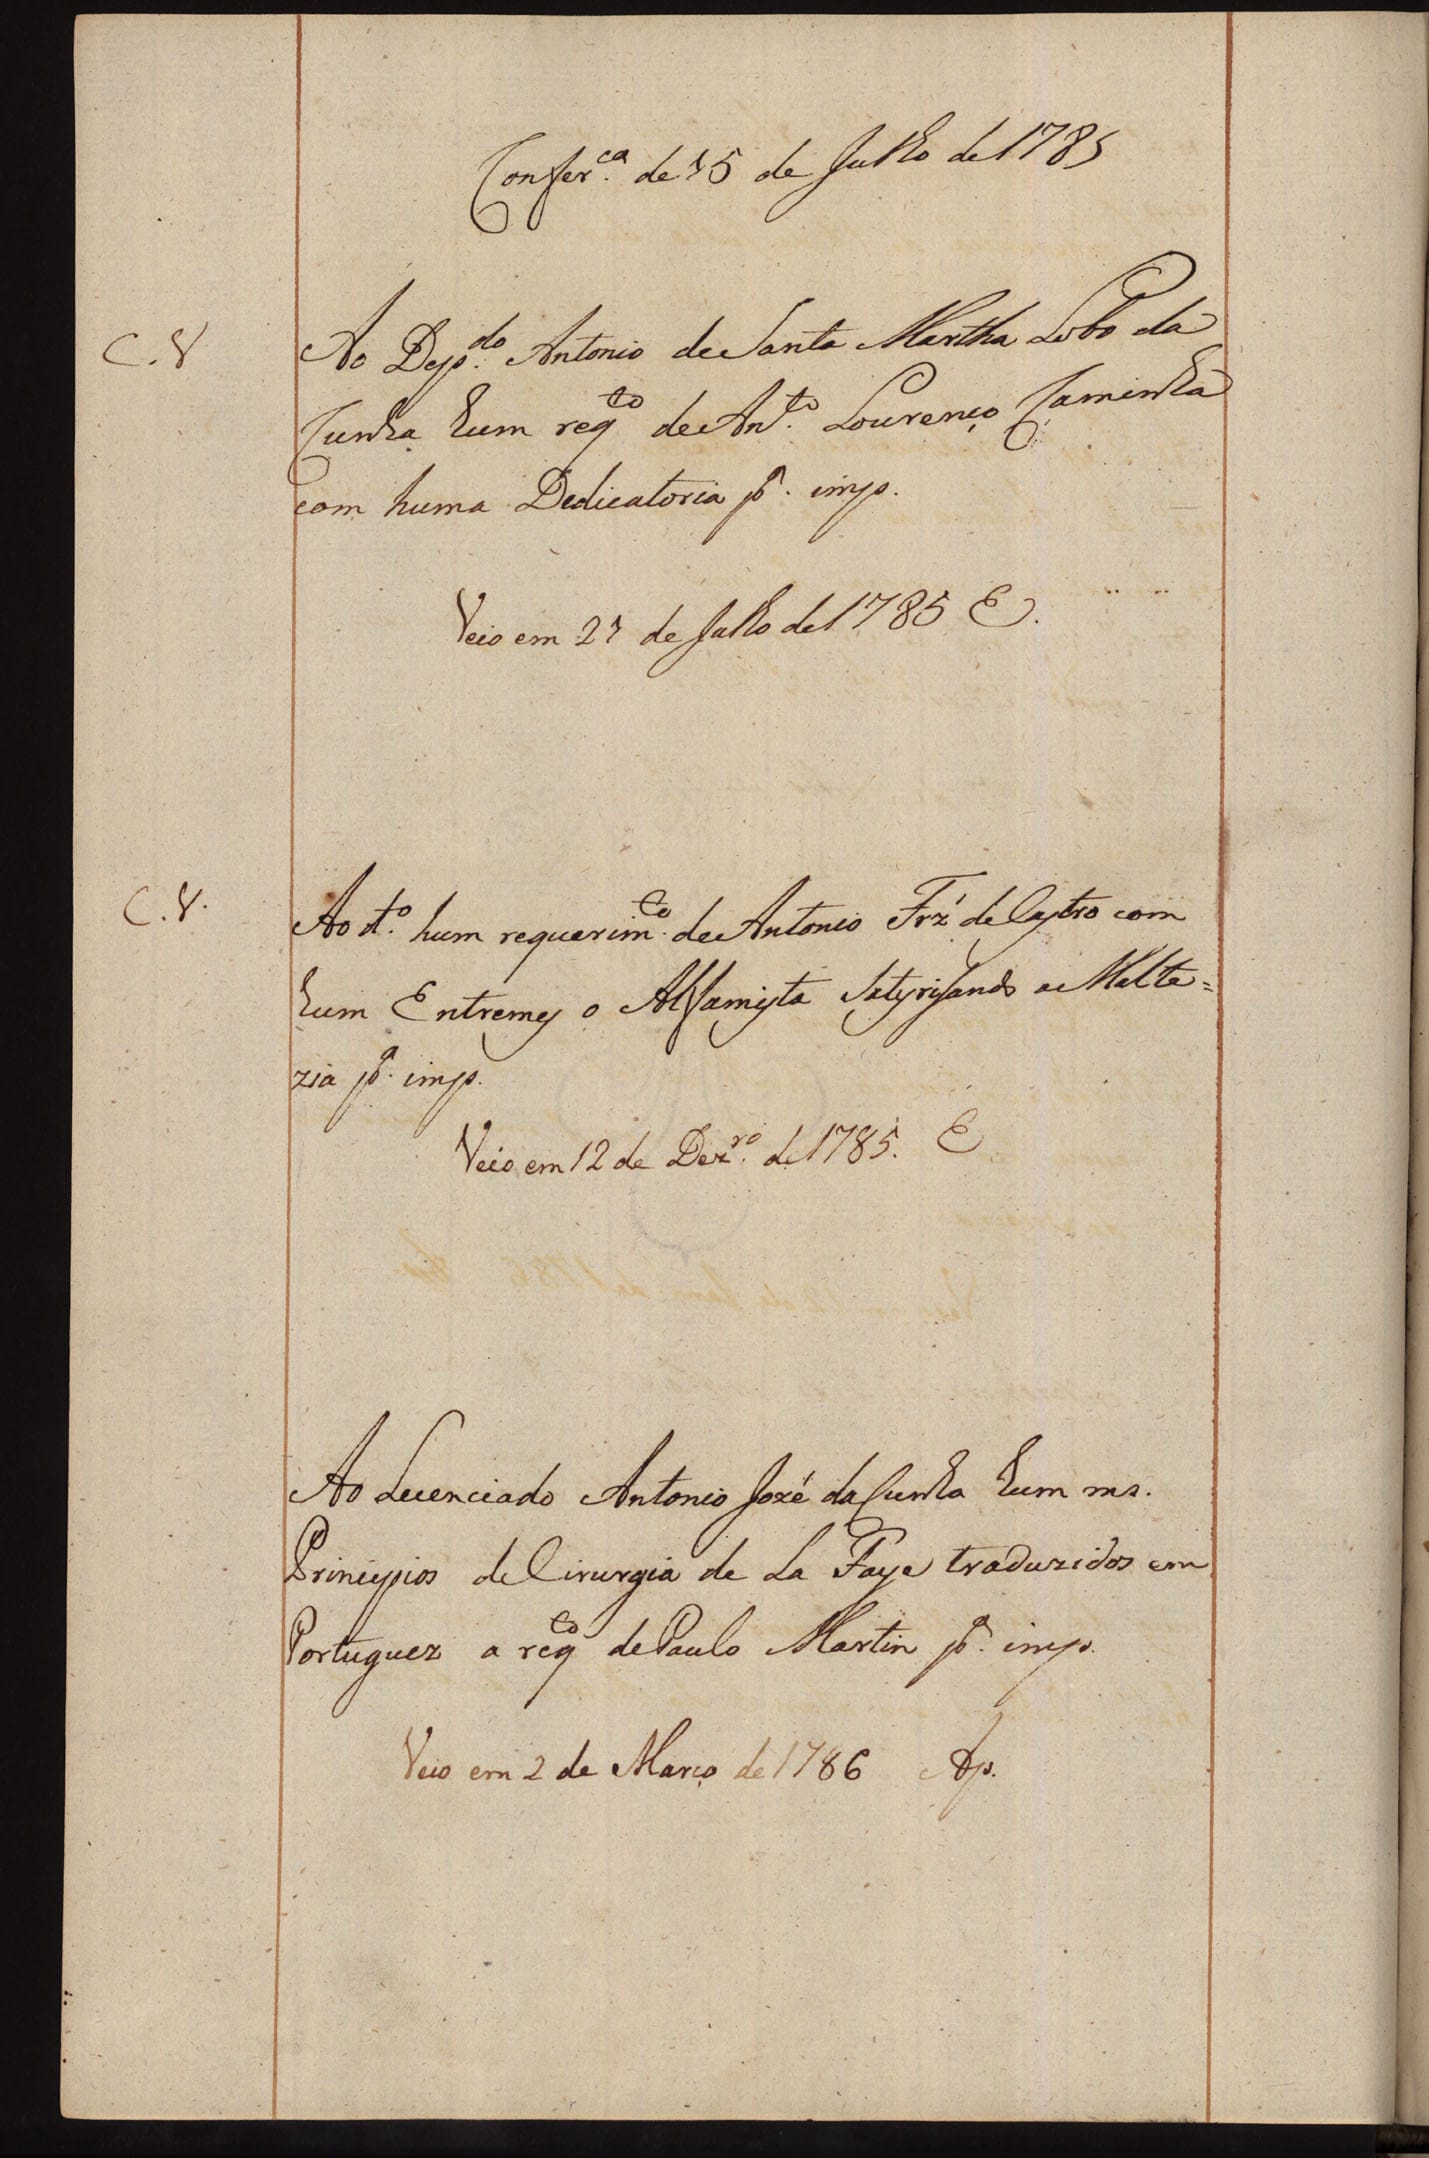 Confer.ca de 15 de Julho de 1785
C. V
Ao Dep.do Antonio de Santa Martha Lobo da
Cunha hum reqto de Ant.o Lourenço Caminha
com huma Dedicatoria pa. imp.
Veio em 21 de Julho de 1785 E.
C. V.
Ao d.o hum requerim.to de Antonio Frz' de Castro com
hum Entremes o Alfamista Satyrisando a Malte=
zia pa. imp.
Veio em 12 de Dez.ro de 1785. E
Ao Lecenciado Antonio José da Cunha hum ms.
Principios de Cirurgia de La Faye traduzidos em
Portuguez a reqto de Paulo Martin pa. imp.
Veio em 2 de Março de 1786 Ap.